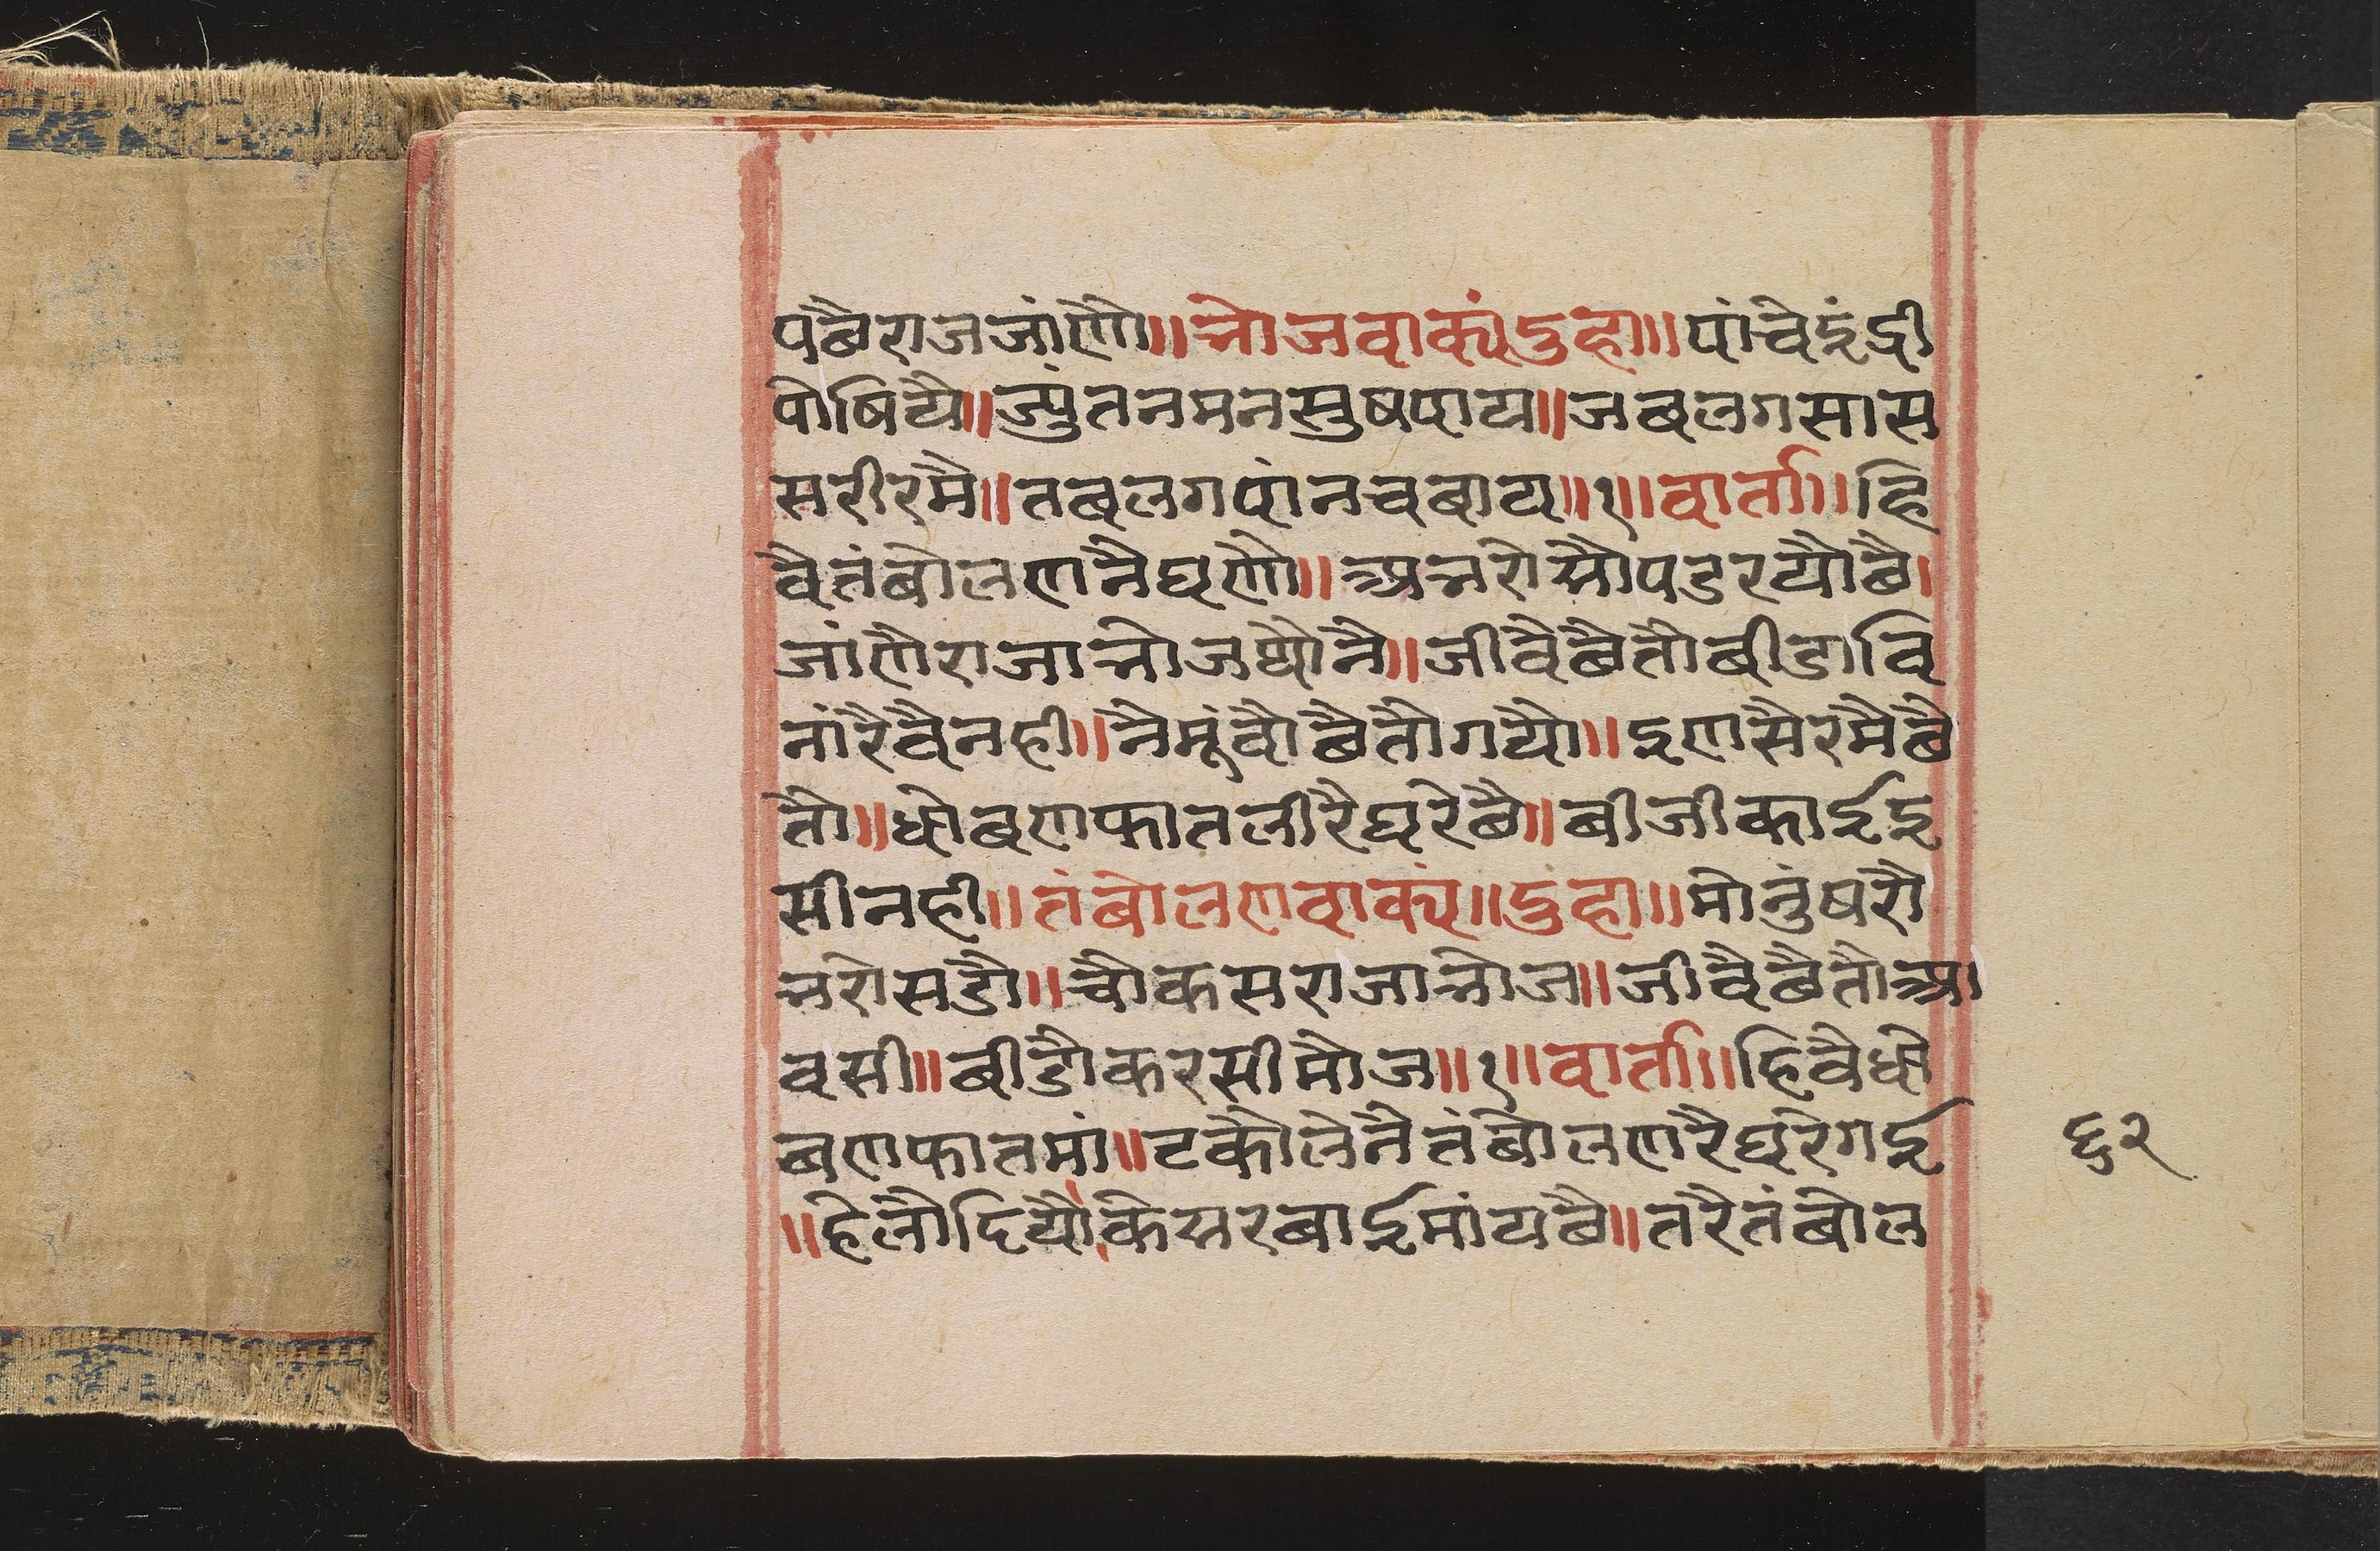 पछैराजजांणै॥भोजवाक्यंदुहा॥पांचेइंद्री
पोषियै॥ज्युंतनमनसुषपाय॥जबलगसास
सरीरमै॥तबलगपांनचबाय॥१॥वार्ता॥हि
वैतंबोलणनैघणौ॥भरोसौपडरयौछै।
जांणैराजाभोजथौनै॥जीवैछैतौबीडावि
नांरैवैनही॥नैमूंवौछैतौगयौ॥इणसैरमैछै
तौ॥धोबणफातलीरैघरेछै॥बीजीकाईइ
सीनही॥तंबोलणवाक्यं॥दुहा॥मोनुंषरौ
भरोसडौ॥चौकसराजाभोज॥जीवैछैतौआ
वसी॥बीडौकरसीमौज॥१॥वार्ता॥हिवैधो
बणफातमां॥टकौलेनैतंबोलणरैघरेगई
॥हेलौदियौ।केसरबाईमांयछै॥तरैतंबोल
६२